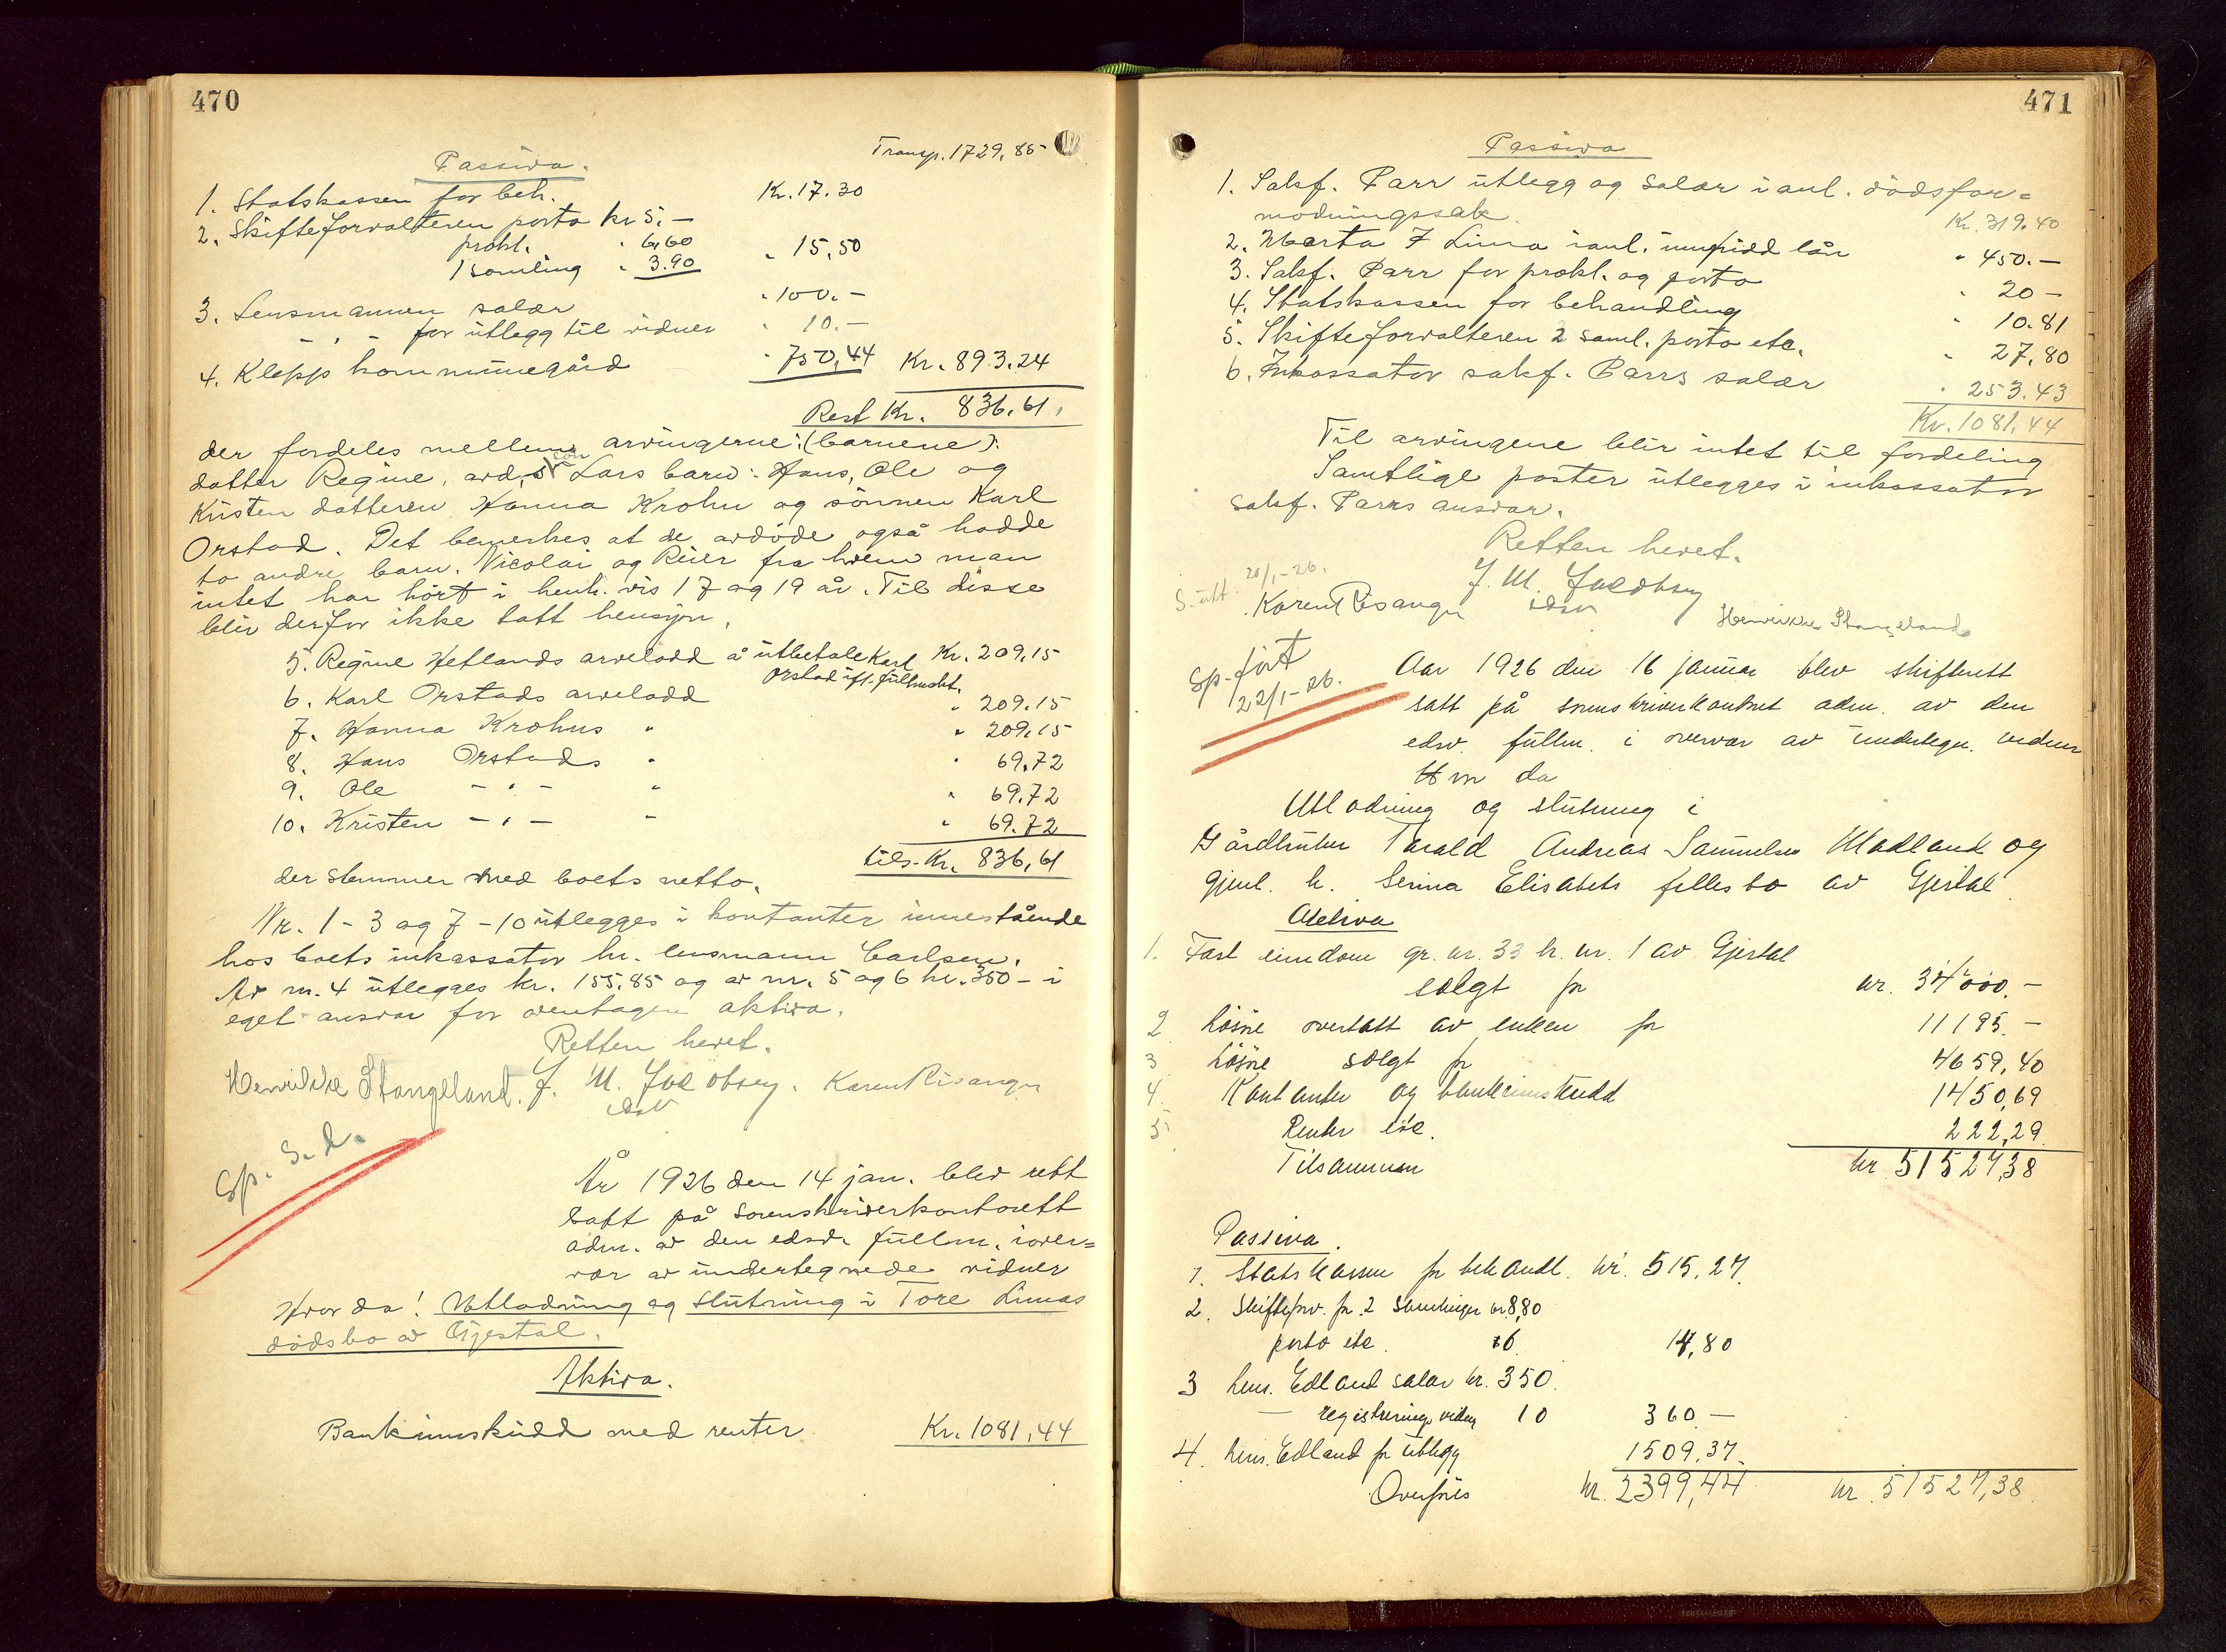 470
Transp. 1729,85
Passiva.
1. Statskassen for beh. Kr. 17.30
2. Skifteforvalteren porto kr 5.-
prokl. " 6,60
1 samling " 3.90 " 15,50
3. Lensmannen salær " 100.-
- " - for utlegg til vidner " 10.-
4. Klepp kommunegård " 750,44 Kr. 893.24
Rest Kr. 836,61.
der fordeles mellem arvingerne: (barnene):
datter Regine, avd. søn Lars barn: Hans, Ole og
Kristen datteren Hanna Krohn og sønnen Karl
Orstad. Det bemerkes at de avdøde også hadde
to andre barn. Nicolai og Reier fra hvem man
intet har hørt i henh. vis 17 og 19 år. Til disse
blir derfor ikke tatt hensyn.
5. Regine Hetlands arvelodd å utbetale Karl Kr. 209,15
Orstad ifl. fullmakt.
6. Karl Orstads arvelodd " 209.15
7. Hanna Krohns " " 209,15
8. Hans Orstads " " 69,72
9. Ole - " - " " 69,72
10. Kristen - " - " " 69.72
tils. Kr. 836,61
der stemmer med boets netto.
Nr. 1-3 og 7-10 utlegges i kontanter innestående
hos boets inkassator hr. lensmann Carlsen.
Av nr. 4 utlegges kr. 155.85 og av nr. 5 og 6 kr. 350- i
eget ansvar for overtagen aktiva.
Retten hevet.
Henrikke Stangeland. J. M. Jacobsen. Karen Risanger
edsv
Sp. S. d.
År 1926 den 14 jan. blev rett
satt på sorenskriverkontorett
adm. av den edsv. fullm. i over=
vær av undertegnede vidner
Hvor da! Utlodning og slutning i Tore Limas
dødsbo av Gjestal.
Aktiva.
Bankinnskudd med renter Kr. 1081,44
471
Passiva
1. Sakf. Parr utlegg og salær i anl. dødsfor=
modningssak. Kr. 319.40
2. Marta T Lima i anl. lån " 450.-
3. Sakf. Parr for prokl. og porto " 20-
4. Statskassen for behandling " 10.81
5. Skifteforvalteren 2 saml. porto etc. " 27,80
6. Inkassator sakf. Parrs salær " 253.43
Kr. 1081,44
Til arvingene blir intet til fordeling
Samtlige poster utlegges i inkassator
sakf. Parrs ansvar.
Retten hevet.
S. utt. 20/1-26.
J. M. Jacobsen
Karen Risanger edsv Henrikke Stangeland
Sp. ført
22/1-26.
Aar 1926 den 16 januar blev skifterett
satt på sorenskriverkontoret adm. av den
edsv. fullm. i overvær av undertegn. vidner
Hvor da
Utlodning og slutning i
Gårdbruker Torald Andreas Samuelsen Madland og
gjenl. h. Serina Elisabets fellesbo av Gjestal
Aktiva
1. Fast eiendom gr. nr. 33 b. nr. 1 av Gjestal
solgt for kr. 34000.-
2 Løsøre overtatt av enken for 11195.-
3 Løsøre solgt for 4659,40
4. Kontanter og bankinnskudd 1450,69
5 Renter etc. 222,29
Tilsammen kr. 51527,38
Passiva.
1. Statskassen for behandl. kr. 515,27
2. Skifteforv. for 2 samlinger kr. 8,80
porto etc. 6. 14,80
3 Lens. Edland salær kr. 350.
- registrerings vidner 10 360.-
4. Lens. Edland for utlegg 1509,37
Overføres kr. 2399,44 kr. 51527,38